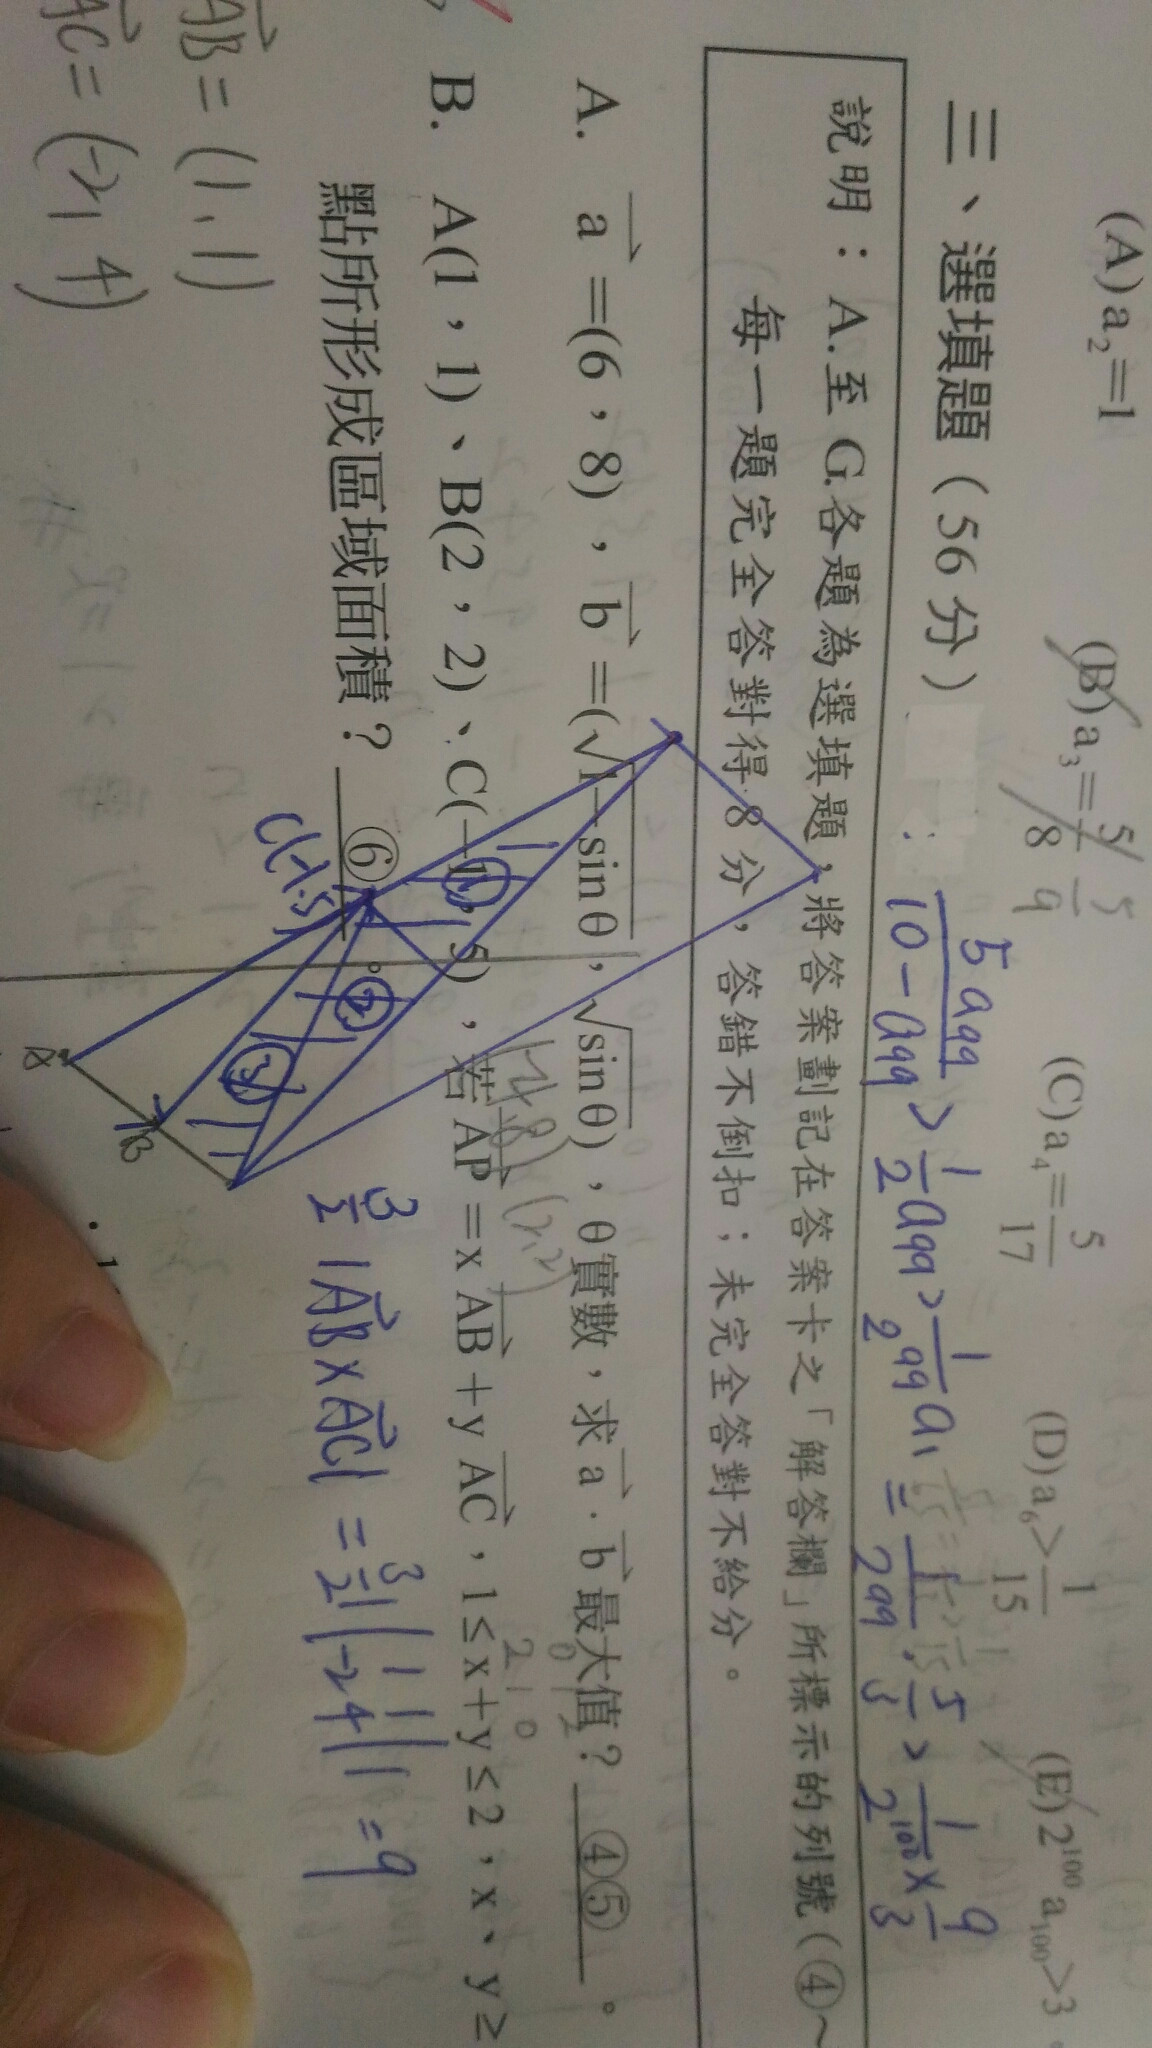 (A)a₂=1 (B)a₃=5/8 5/9 (C)a₄=5/17 (D)a₆>1/15 (E)2¹⁰⁰a₁₀₀>3
三、選填題(56分)
5a₉₉/(10-a₉₉) > 1/2 a₉₉ > 1/2⁹⁹ a₁ = 1/2⁹⁹ · 5/3 > 1/2¹⁰⁰ × 9/3
說明:A.至G.各題為選填題,將答案劃記在答案卡之「解答欄」所標示的列號(④~
每一題完全答對得8分,答錯不倒扣;未完全答對不給分。
A. a⃗=(6,8),b⃗=(√(1-sinθ),√sinθ),θ實數,求a⃗·b⃗最大值?④⑤。
B. A(1,1)、B(2,2)、C(-1,5),若AP⃗=xAB⃗+yAC⃗,1≤x+y≤2,x、y≥
點所形成區域面積?⑥。
① ② ③
C(-1,5)
A
B
3/2 |AB⃗×AC⃗| = 3/2 ||1 1 -2 4|| = 9
AB⃗=(1,1)
AC⃗=(-2,4)